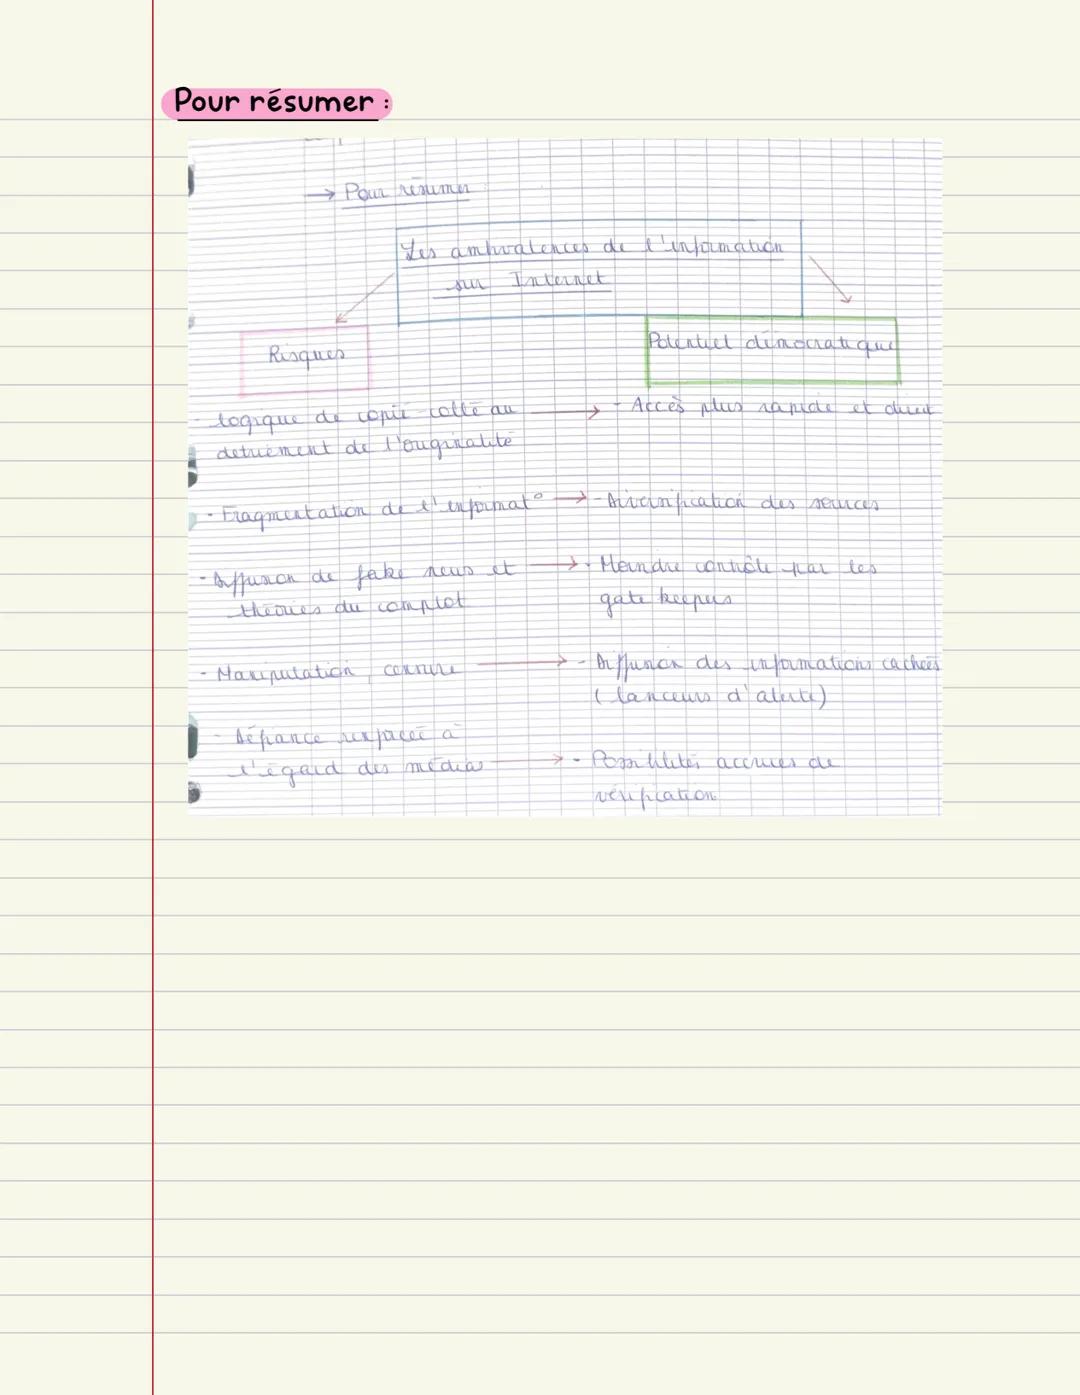 Pour résumer :
→ Pour résumer
Les ambivalences de l'information
sur Internet
Risques
Potentiel démocratique
- logique de copié-collé au → - Accès plus rapide et direct
detriement de l'originalité
- Fragmentation de l'informat° → - Diversification des sources
- Diffusion de fake news et → - Moindre contrôle par les
théories du complot gate keepers
- Manipulation, censure → - Diffusion des informations cachées
(lanceurs d'alerte)
- Défiance renforcée à
l'égard des médias → - Possibilités accrues de
vérification